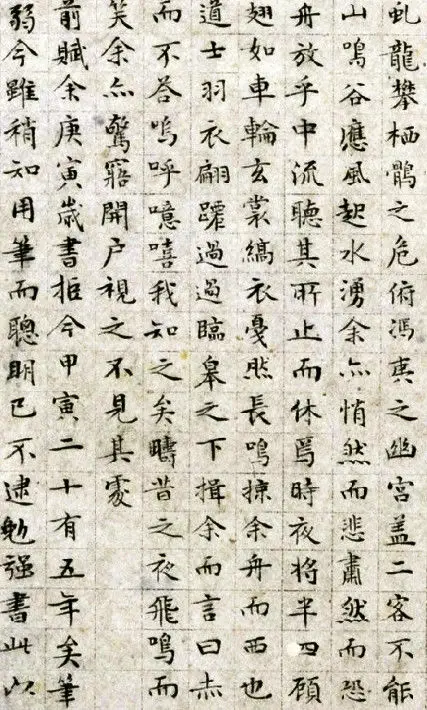 虬龍攀栖鶻之危俯馮夷之幽宮盖二客不能
山鳴谷應風起水湧余亦悄然而悲肅然而恐
舟放乎中流聽其所止而休焉時夜将半四顧
翅如車輪玄裳縞衣戛然長鳴掠余舟而西也
道士羽衣翩躚過過臨皋之下揖余而言曰赤
而不答嗚呼噫嘻我知之矣疇昔之夜飛鳴而
笑余亦驚寤開户視之不見其處
前賦余庚寅歲書拒今甲寅二十有五年矣筆
弱今雖稍知用筆而聰明已不逮勉强書此以